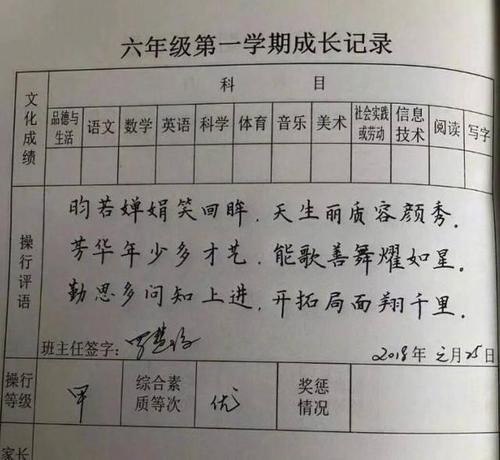 六年级第一学期成长记录
文化成绩
科 目
品德与生活 语文 数学 英语 科学 体育 音乐 美术 社会实践或劳动 信息技术 阅读 写字
操行评语
昀若婵娟笑回眸，天生丽质容颜秀。
芳华年少多才艺，能歌善舞耀如星。
勤思多问知上进，开拓局面翔千里。
班主任签字：
2018 年 元月 25 日
操行等级 甲 综合素质等次 优 奖惩情况
家长